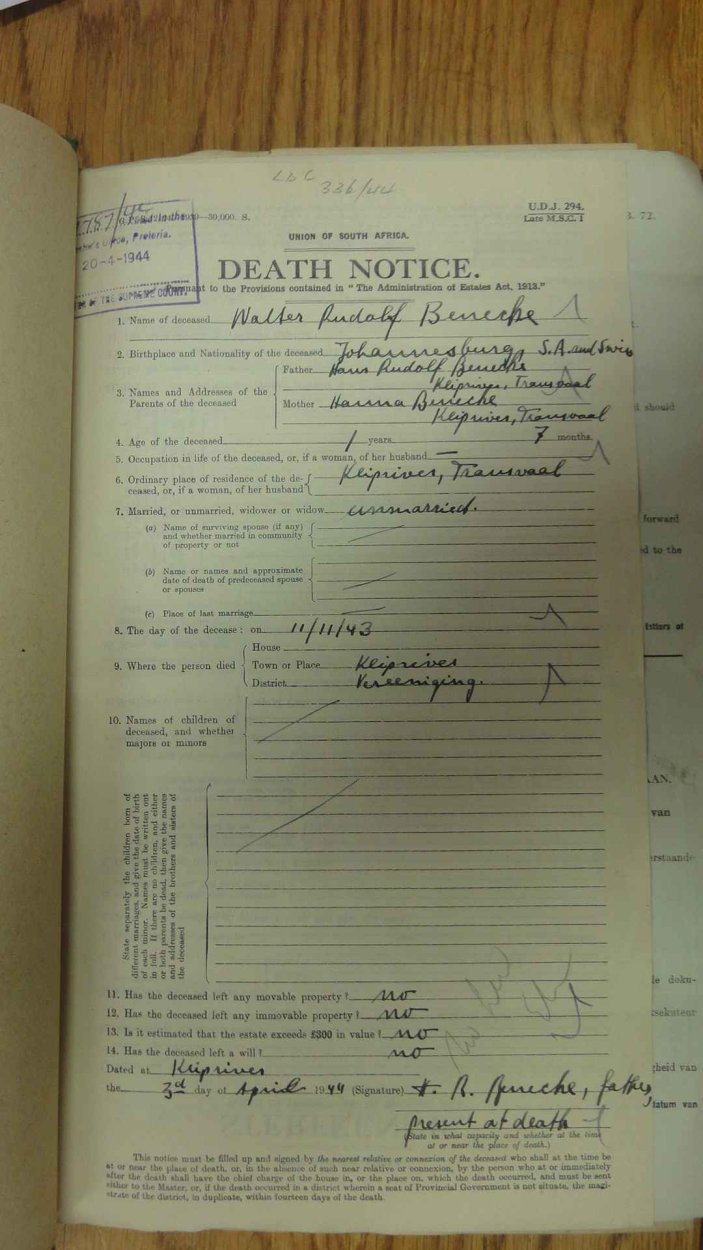 336/44
U.D.J. 294.
Late M.S.C. 1
30,000. S.
3. 72.
Pretoria.
20-4-1944
OF THE SUPREME COURT.
UNION OF SOUTH AFRICA.
DEATH NOTICE.
Pursuant to the Provisions contained in "The Administration of Estates Act, 1913."
1. Name of deceased Walter Rudolf Benecke
2. Birthplace and Nationality of the deceased Johannesburg, S.A. and Swiss
3. Names and Addresses of the Parents of the deceased
Father Hans Rudolf Benecke
Kliprivier, Transvaal
Mother Hanna Benecke
Kliprivier, Transvaal
4. Age of the deceased 1 years 7 months.
5. Occupation in life of the deceased, or, if a woman, of her husband —
6. Ordinary place of residence of the de-
ceased, or, if a woman, of her husband Kliprivier, Transvaal
7. Married, or unmarried, widower or widow unmarried.
(a) Name of surviving spouse (if any)
and whether married in community
of property or not
(b) Name or names and approximate
date of death of predeceased spouse
or spouses
(c) Place of last marriage
8. The day of the decease: on 11/11/43
9. Where the person died
House
Town or Place Kliprivier
District Vereeniging.
10. Names of children of
deceased, and whether
majors or minors
State separately the children born of
different marriages, and give the date of birth
of each minor. Names must be written out
in full. If there are no children, and either
or both parents be dead, then give the names
and addresses of the brothers and sisters of
the deceased
11. Has the deceased left any movable property? no
12. Has the deceased left any immovable property? no
13. Is it estimated that the estate exceeds £300 in value? no
14. Has the deceased left a will? no
Dated at Kliprivier
the 3rd day of April 1944 (Signature) H. R. Benecke, father,
present at death
(State in what capacity and whether at the time
at or near the place of death.)
This notice must be filled up and signed by the nearest relative or connexion of the deceased who shall at the time be
at or near the place of death, or, in the absence of such near relative or connexion, by the person who at or immediately
after the death shall have the chief charge of the house in, or the place on, which the death occurred, and must be sent
either to the Master, or, if the death occurred in a district wherein a seat of Provincial Government is not situate, the magi-
strate of the district, in duplicate, within fourteen days of the death.
should
forward
to the
AAN.
van
doku-
van
datum van